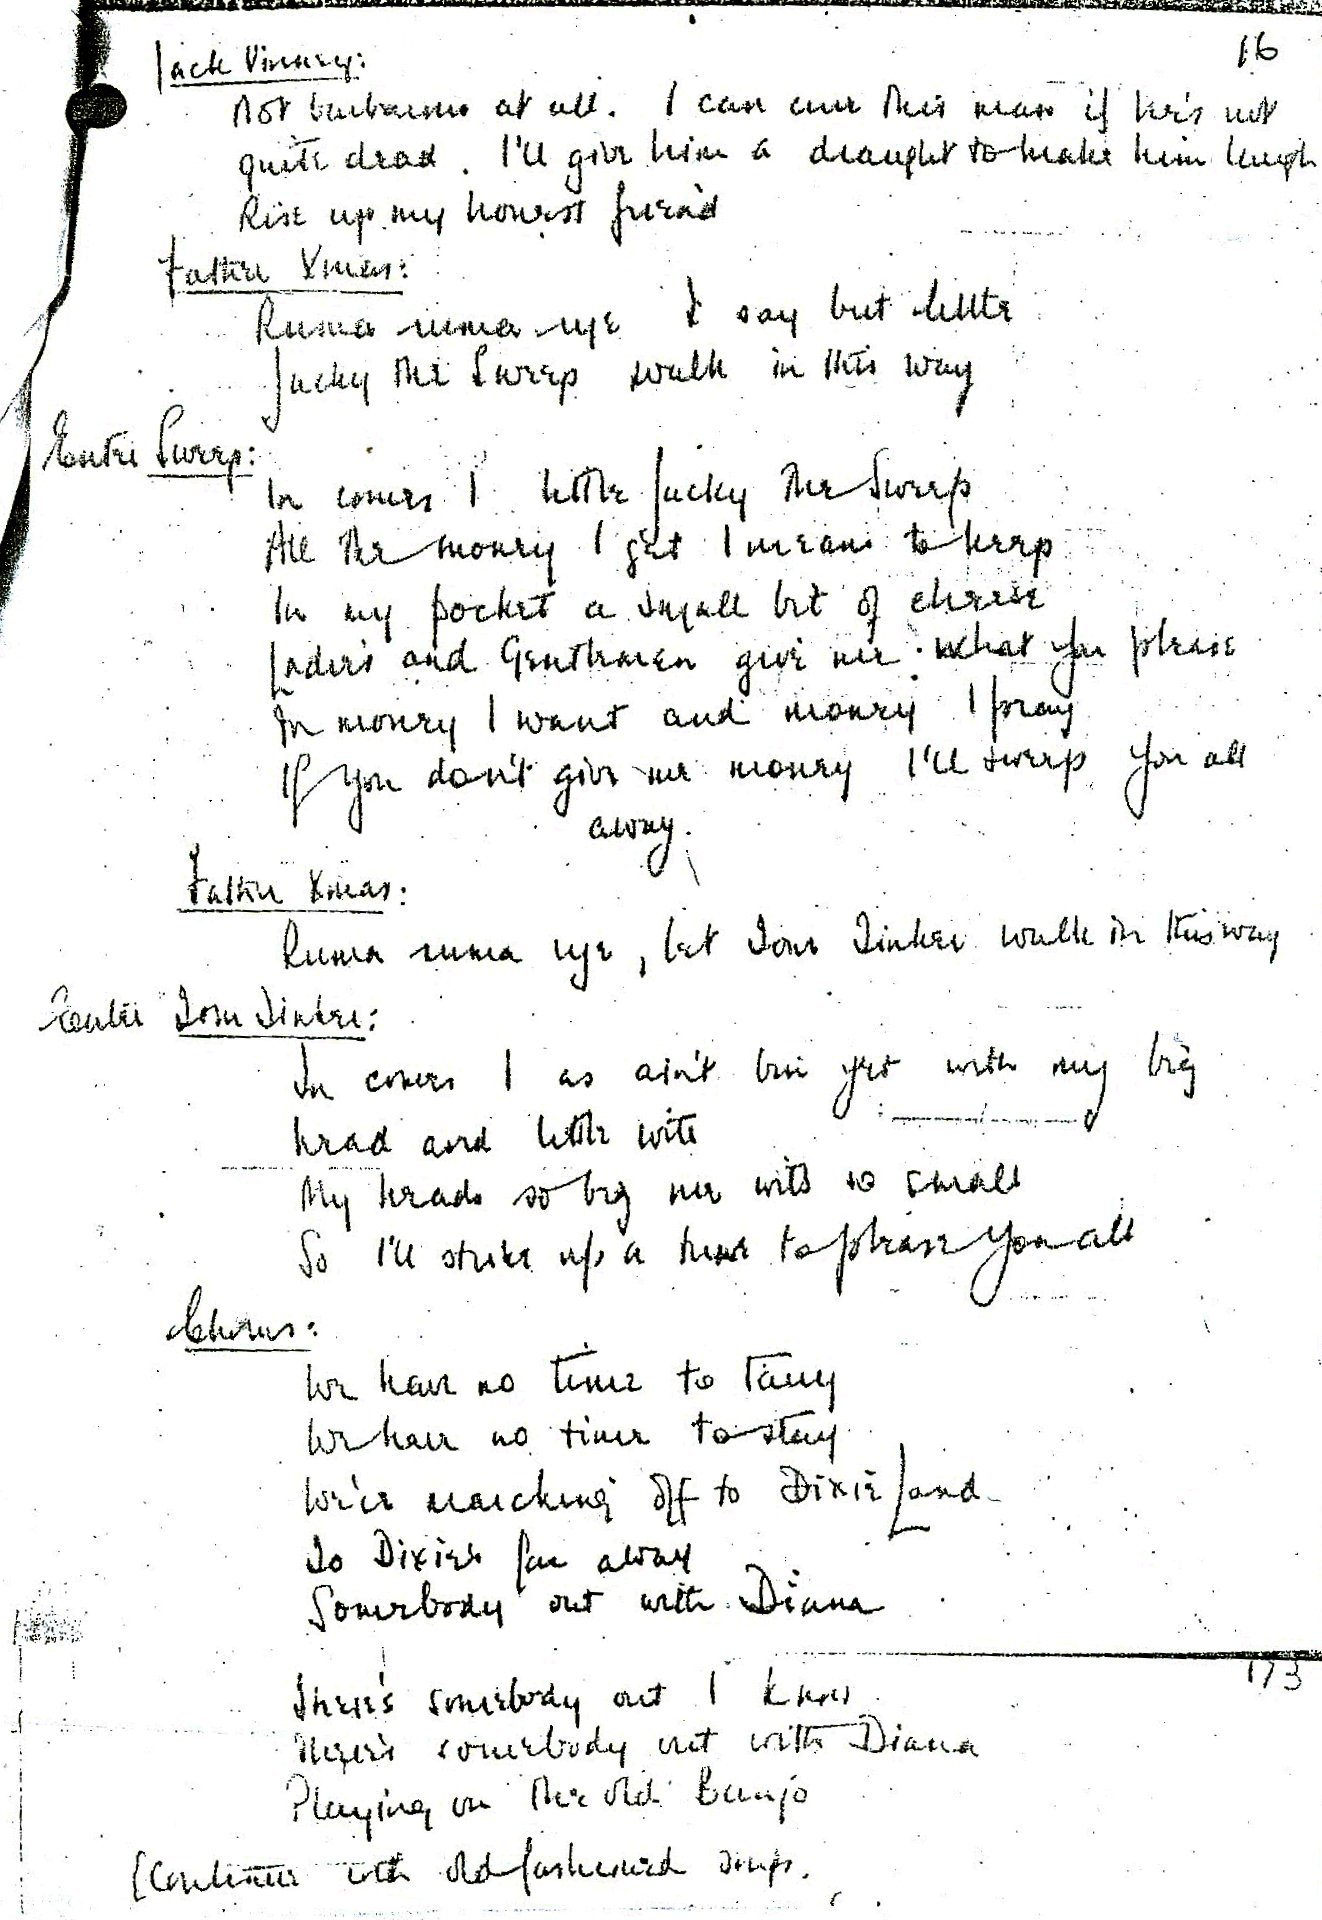 16
Jack Vinney:
Not barbarous at all. I can cure this man if he's not
quite dead. I'll give him a draught to make him laugh
Rise up my honest friend
Father Xmas:
Ruma ruma rye I say but little
Jacky the Sweep walk in this way
Enter Sweep:
In comes I little Jacky the Sweep
All the money I get I means to keep
In my pocket a small bit of cheese
Ladies and Gentlemen give me what you please
In money I want and money I pray
If you don't give me money I'll sweep you all
away.
Father Xmas:
Ruma ruma rye, let Tom Tinker walk in this way
Enter Tom Tinker:
In comes I as ain't bin yet with my big
head and little wits
My heads so big me wits so small
So I'll strike up a tune to please you all
Chorus:
We have no time to tarry
We have no time to stay
We're marching off to Dixie Land
To Dixies far away
Somebody out with Diana
173
There's somebody out I know
There's somebody out with Diana
Playing on the old Banjo
[Continue with old fashioned songs.